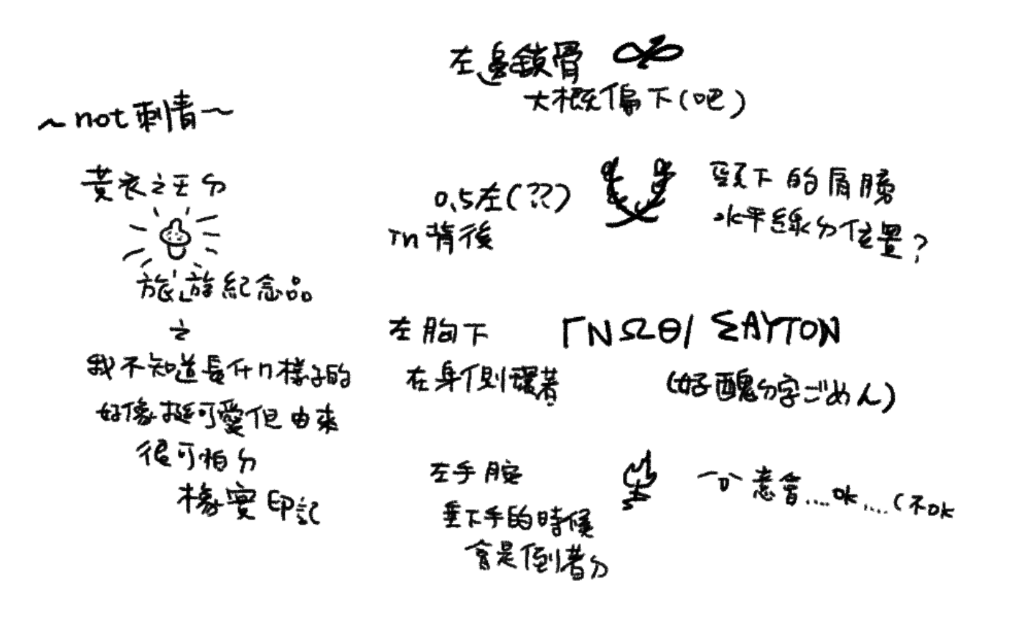 左邊鎖骨
大概偏下(吧)
~not刺青~
黃衣之王ㄉ
旅遊紀念品
之
我不知道長什ㄇ樣子的
好像挺可愛但由來
很可怕ㄉ
橡實印記
0.5左(??)
in背後
頸下的肩膀
水平線ㄉ位置?
左胸下
在身側環著
ΓΝΩΘΙ ΣΑΥΤΟΝ
(好醜ㄉ字ごめん)
左手腕
垂下手的時候
會是倒著ㄉ
意會....ok....(不ok